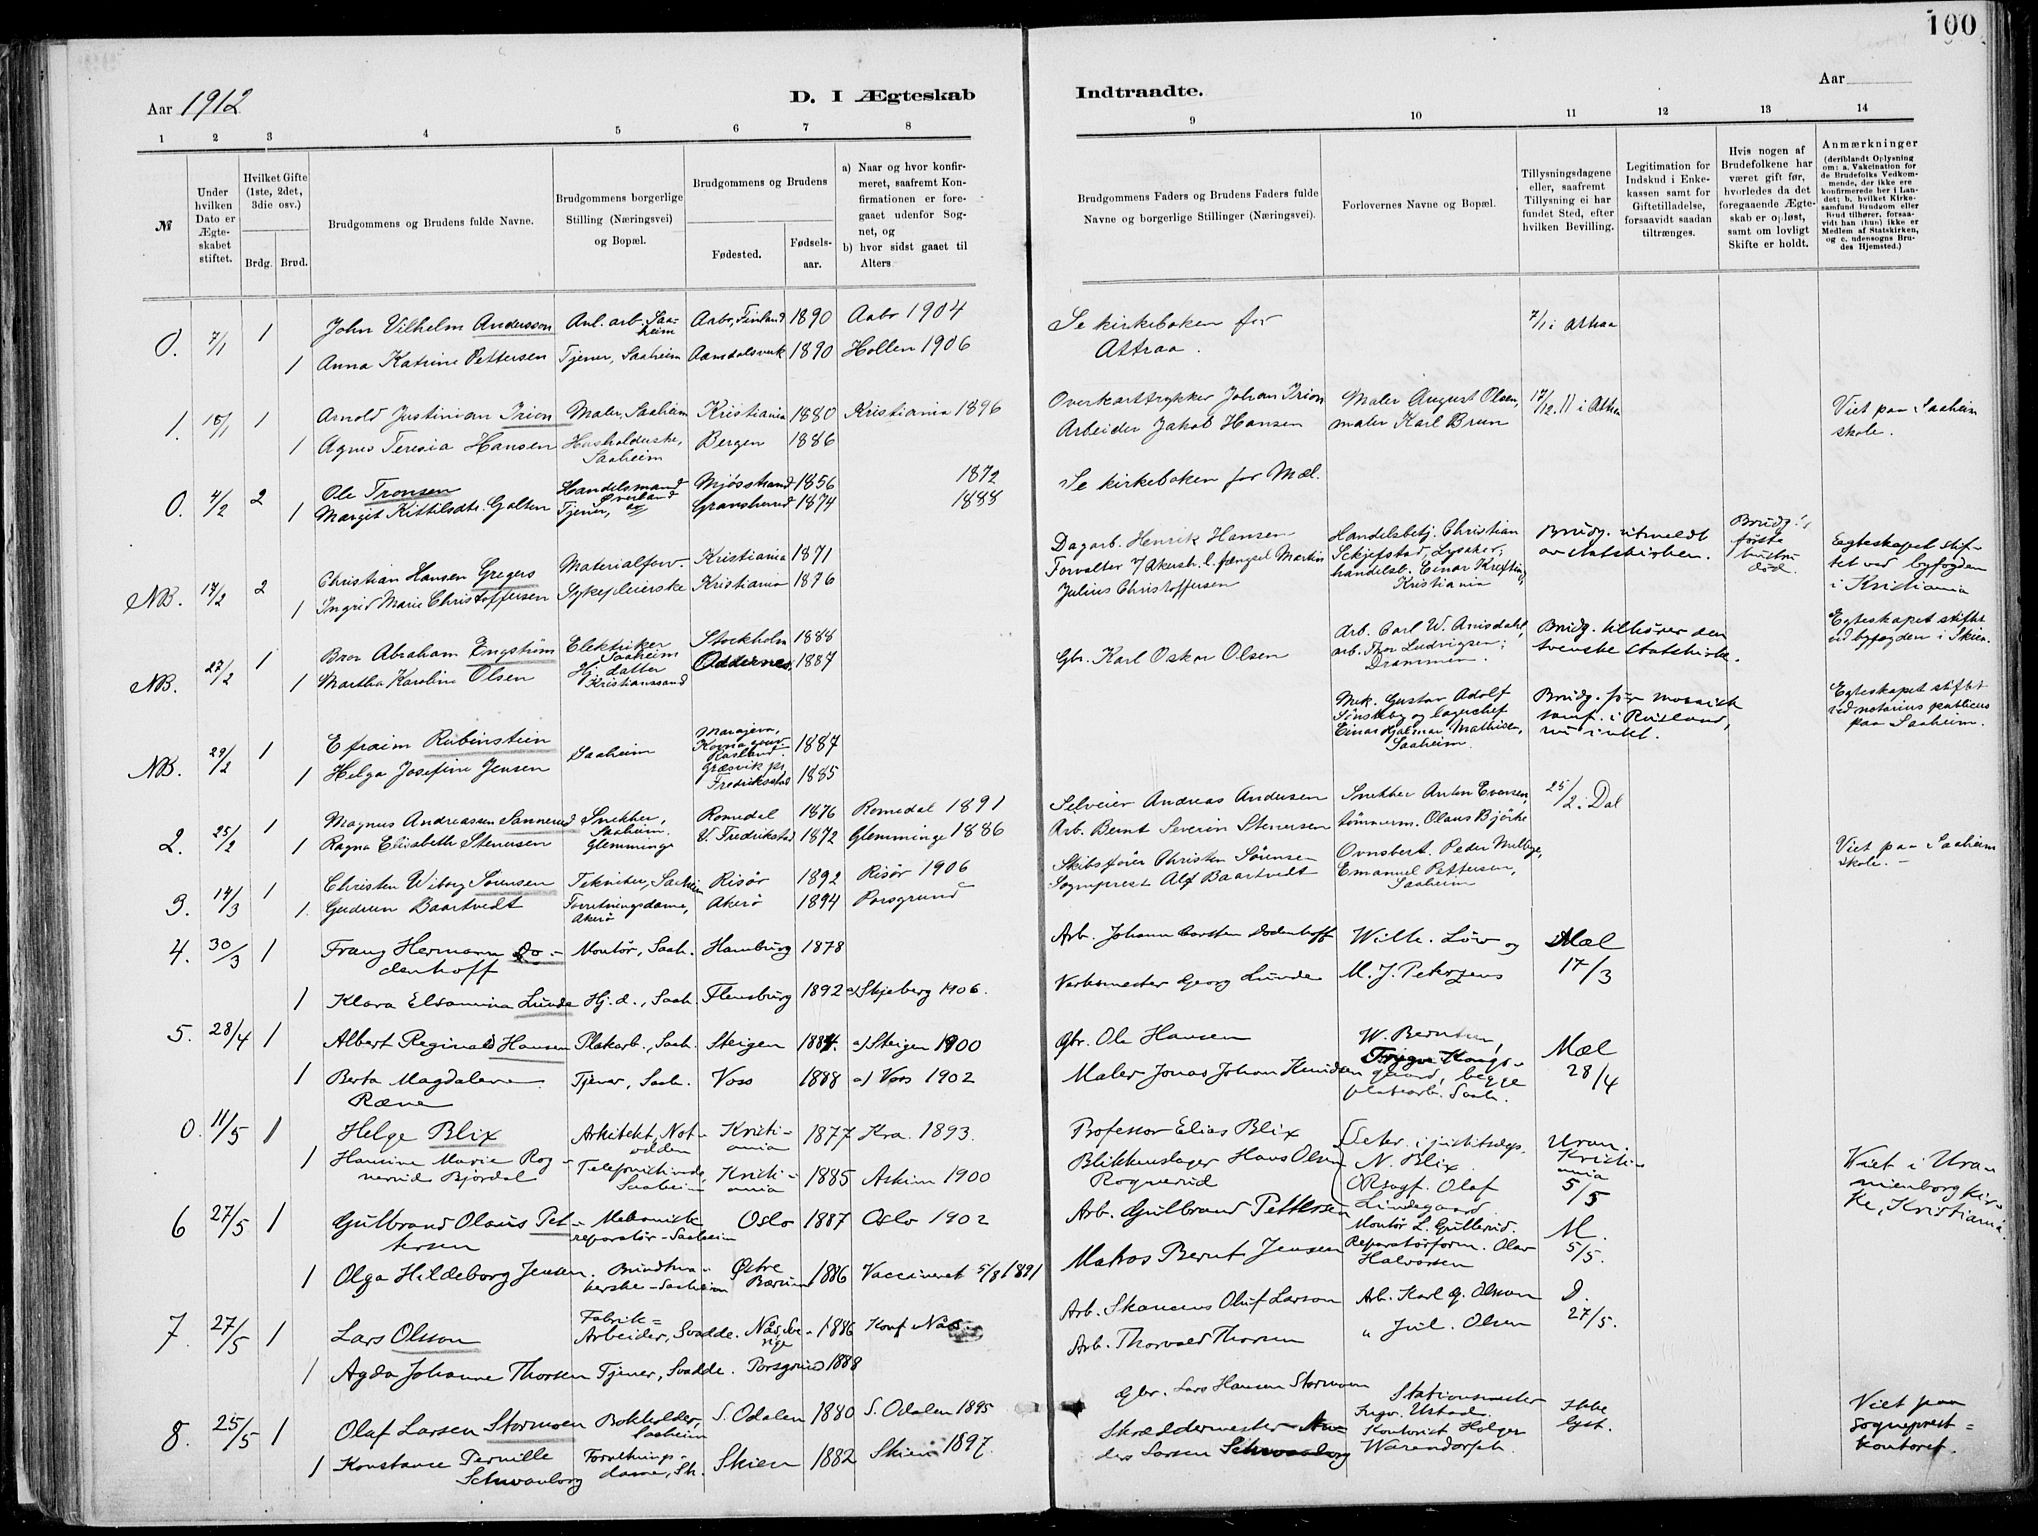 100
Aar 1912
D. I Ægteskab
Indtraadte.
Aar
1 2 3 4 5 6 7 8 9 10 11 12 13 14
№
Under hvilken Dato er Ægteskabet stiftet.
Hvilket Gifte (1ste, 2det, 3die osv.)
Brdg. Brud.
Brudgommens og Brudens fulde Navne.
Brudgommens borgerlige Stilling (Næringsvei) og Bopæl.
Brudgommens og Brudens
Fødested.
Fødsels-aar.
a) Naar og hvor konfirmeret, saafremt Konfirmationen er foregaaet udenfor Sognet, og
b) hvor sidst gaaet til Alters
Brudgommens Faders og Brudens Faders fulde Navne og borgerlige Stillinger (Næringsvei).
Forlovernes Navne og Bopæl.
Tillysningsdagene eller, saafremt Tillysning ei har fundet Sted, efter hvilken Bevilling.
Legitimation for Indskud i Enkekassen samt for Giftetilladelse, forsaavidt saadan tiltrænges.
Hvis nogen af Brudefolkene har været gift før, hvorledes da det foregaaende Ægteskab er opløst, samt om lovligt Skifte er holdt.
Anmærkninger
(deriblandt Oplysning om: a. Vakcination for de Brudefolks Vedkommende, der ikke ere konfirmerede her i Landet; b. hvilket Kirkesamfund Brudgom eller Brud tilhører, forsaavidt han (hun) ikke er Medlem af Statskirken, og c. udensogns Brudes Hjemsted.)
0. 7/1 1 John Vilhelm Andersson Anl. arb. Saaheim Aabo, Finland 1890 Aabo 1904 Se kirkeboken for Attraa. 7/1 i Attraa
1 Anna Katrine Pettersen Tjener, Saaheim Aamdalsverk 1890 Hollen 1906
1. 15/1 1 Arnold Justinian Irion Maler, Saaheim Kristiania 1880 Kristiania 1896 Overkarttrykker Johan Irion Maler August Olsen, 17/12. 11 i Attra Viet paa Saaheim skole.
1 Agnes Teresia Hansen Husholderske, Saaheim Bergen 1886 Arbeider Jakob Hansen maler Karl Brun
0. 4/2 2 Ole Tronsen Handelsmand Øverland Mjösstrand 1856 1872 Se kirkeboken for Mæl.
1 Margit Kittilsdtr. Galten Tjener, Gransherred 1874 1888
NB. 14/2 2 Christian Hansen Gregers Materialforv. Kristiania 1871 Dagarb. Henrik Hansen Handelsbetj. Christian Skjefstad, Lysaker; Brudg. utmeldt av statskirken. Brudg.'s første hustru død. Egteskapet stiftet ved byfogden i Kristiania
1 Ingrid Marie Christoffersen Sykepleierske Kristiania 1876 Forvalter v/ Akersh. l. fængsel Martin Julius Christoffersen handelsb. Einar Krefting Kristiania
NB. 27/2 1 Bror Abraham Engström Elektriker Saaheim Stockholm 1888 Arb. Carl W. Arnisdahl, arb. Thor Ludvigsen; Drammen. Brudg. tilhører den svenske statskirke. Egteskapet stiftet ved byfogden i Skien.
1 Martha Karoline Olsen Hj. datter Kristianssand Oddernes 1887 Gbr. Karl Oskar Olsen
NB. 29/2 1 Efraim Rubinstein Saaheim Rusland 1887 Mek. Gustav Adolf Sönsteby og lagerchef Einar Hjalmar Mathisen, Saaheim. Brudg. før mosaisk samf. i Rusland, nu intet. Egteskapet stiftet ved notarius publicus paa Saaheim.
1 Helga Josefine Jensen Græsvik pr. Fredriksstad 1885
2. 25/2 1 Magnus Andreassen Sannerud Snekker, Saaheim. Romedal 1876 Romedal 1891 Selveier Andreas Andersen Snekker Anton Evensen, 25/2. i Dal
1 Ragna Elisabeth Stenersen Glemminge V. Fredrikstad 1872 Glemminge 1886 Arb. Bernt Severin Stenersen tömmerm. Olaus Björke
3. 14/3 1 Christen Wiborg Sørensen Tekniker, Saaheim Risör 1892 Risör 1906 Skibsfører Christen Sörensen Ovnsbert. Peder Mellbye, Viet paa Saaheim skole. –
1. Gudrun Baartvedt Forretningsdame, Akerö Akerö 1894 Porsgrund Sogneprest Alf Baartvedt Emanuel Pettersen, Saaheim
4. 30/3 1 Franz Hermann Dodenhoff Montör, Saah. Hamburg 1878 Arb. Johann Carsten Dodenhoff Wilh. Löv og Mæl
1 Klara Elsamina Lunde Hj. d., Saah. Flensburg 1892 a) Skjeberg 1906. Verksmester Georg Lunde M. J. Petersens 17/3
5. 28/4 1 Albert Reginald Hansen Platearb., Saah. Steigen 1884. a) Steigen 1900 Gbr. Ole Hansen W. Berntsen, Mæl
1 Berta Magdalene Ræne Tjener, Saah. Voss 1888 a) Voss 1902 Maler Jonas Johan Knudsen Trygve Kongsgaard, begge platearb. Saah. 28/4
0. 11/5 1 Helge Blix Arkitekt, Notodden Kristiania 1877 Kra. 1893. Professor Elias Blix Sekr. i justitsdep. N. Blix. Uran. Kristiania 5/5 Viet i Uranienborg kirke, Kristiania.
1 Hansine Marie Rognerud Bjørdal Telefonistinde, Saaheim Kristiania 1885 Askim 1900 Blikkenslager Hans Olsen Rognerud O.Rsagf. Olaf Lindegaard.
6 27/5 1 Gulbrand Olaus Pettersen Mekanisk reparatör - Saaheim Oslo 1887 Oslo 1902 Arb. Gulbrand Pettersen Montör L. Gullerud. M.
1 Olga Hildeborg Jensen Saaheim Østre Bærum 1886 Vaccineret 5/8 1891 Matros Bernt Jensen Reparatörform. Olav Halvorsen 5/5.
7. 27/5 1 Lars Olsson Fabrik= Arbeider, Svadde. Nås, Sverige 1886 Konf. Nås Arb. Skomens Oluf Larson Arb. Karl G. Olsson D.
1 Agda Johanne Thorsen Tjener, Svadde. Porsgrund 1888 Arb. Thorvald Thorsen " Jul. Olsen 27/5.
8. 25/5 1 Olaf Larsen Stormoen Bokholder, Saaheim S. Odalen 1880 S. Odalen 1895 Gbr. Lars Hansen Stormoen Stationsmester Ingv. Ustad, Ikke lyst. Viet paa sogneprest= kontoret.
1 Konstance Pernille Schwanborg Forretnings-dame, Sk. Skien 1882 Skien 1897. Skræddermester Anders Larsen Schwanborg Kontorist Holger Warendorph.